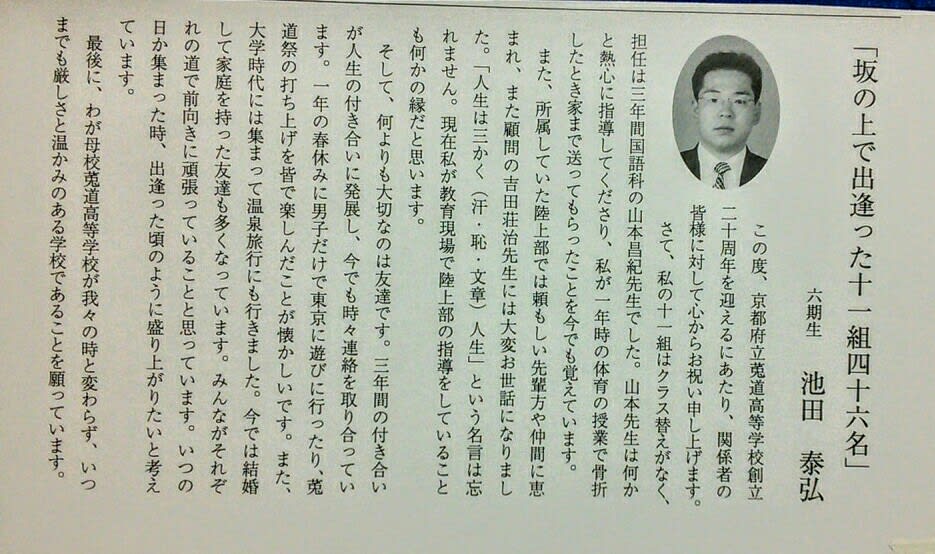 「坂の上で出逢った十一組四十六名」
六期生　池田　泰弘
この度、京都府立莵道高等学校創立
二十周年を迎えるにあたり、関係者の
皆様に対して心からお祝い申し上げます。
さて、私の十一組はクラス替えがなく、
担任は三年間国語科の山本昌紀先生でした。山本先生は何か
と熱心に指導してくださり、私が一年時の体育の授業で骨折
したとき家まで送ってもらったことを今でも覚えています。
また、所属していた陸上部では頼もしい先輩方や仲間に恵
まれ、また顧問の吉田荘治先生には大変お世話になりまし
た。「人生は三かく（汗・恥・文章）人生」という名言は忘
れません。現在私が教育現場で陸上部の指導をしていること
も何かの縁だと思います。
そして、何よりも大切なのは友達です。三年間の付き合い
が人生の付き合いに発展し、今でも時々連絡を取り合ってい
ます。一年の春休みに男子だけで東京に遊びに行ったり、莵
道祭の打ち上げを皆で楽しんだことが懐かしいです。また、
大学時代には集まって温泉旅行にも行きました。今では結婚
して家庭を持った友達も多くなっています。みんながそれぞ
れの道で前向きに頑張っていることと思っています。いつの
日か集まった時、出逢った頃のように盛り上がりたいと考え
ています。
最後に、わが母校莵道高等学校が我々の時と変わらず、いつ
までも厳しさと温かみのある学校であることを願っています。